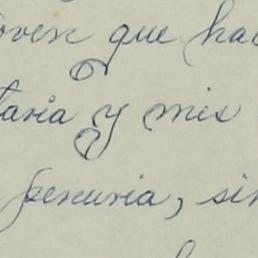 joven que hac
taria y mis
penuria, sin